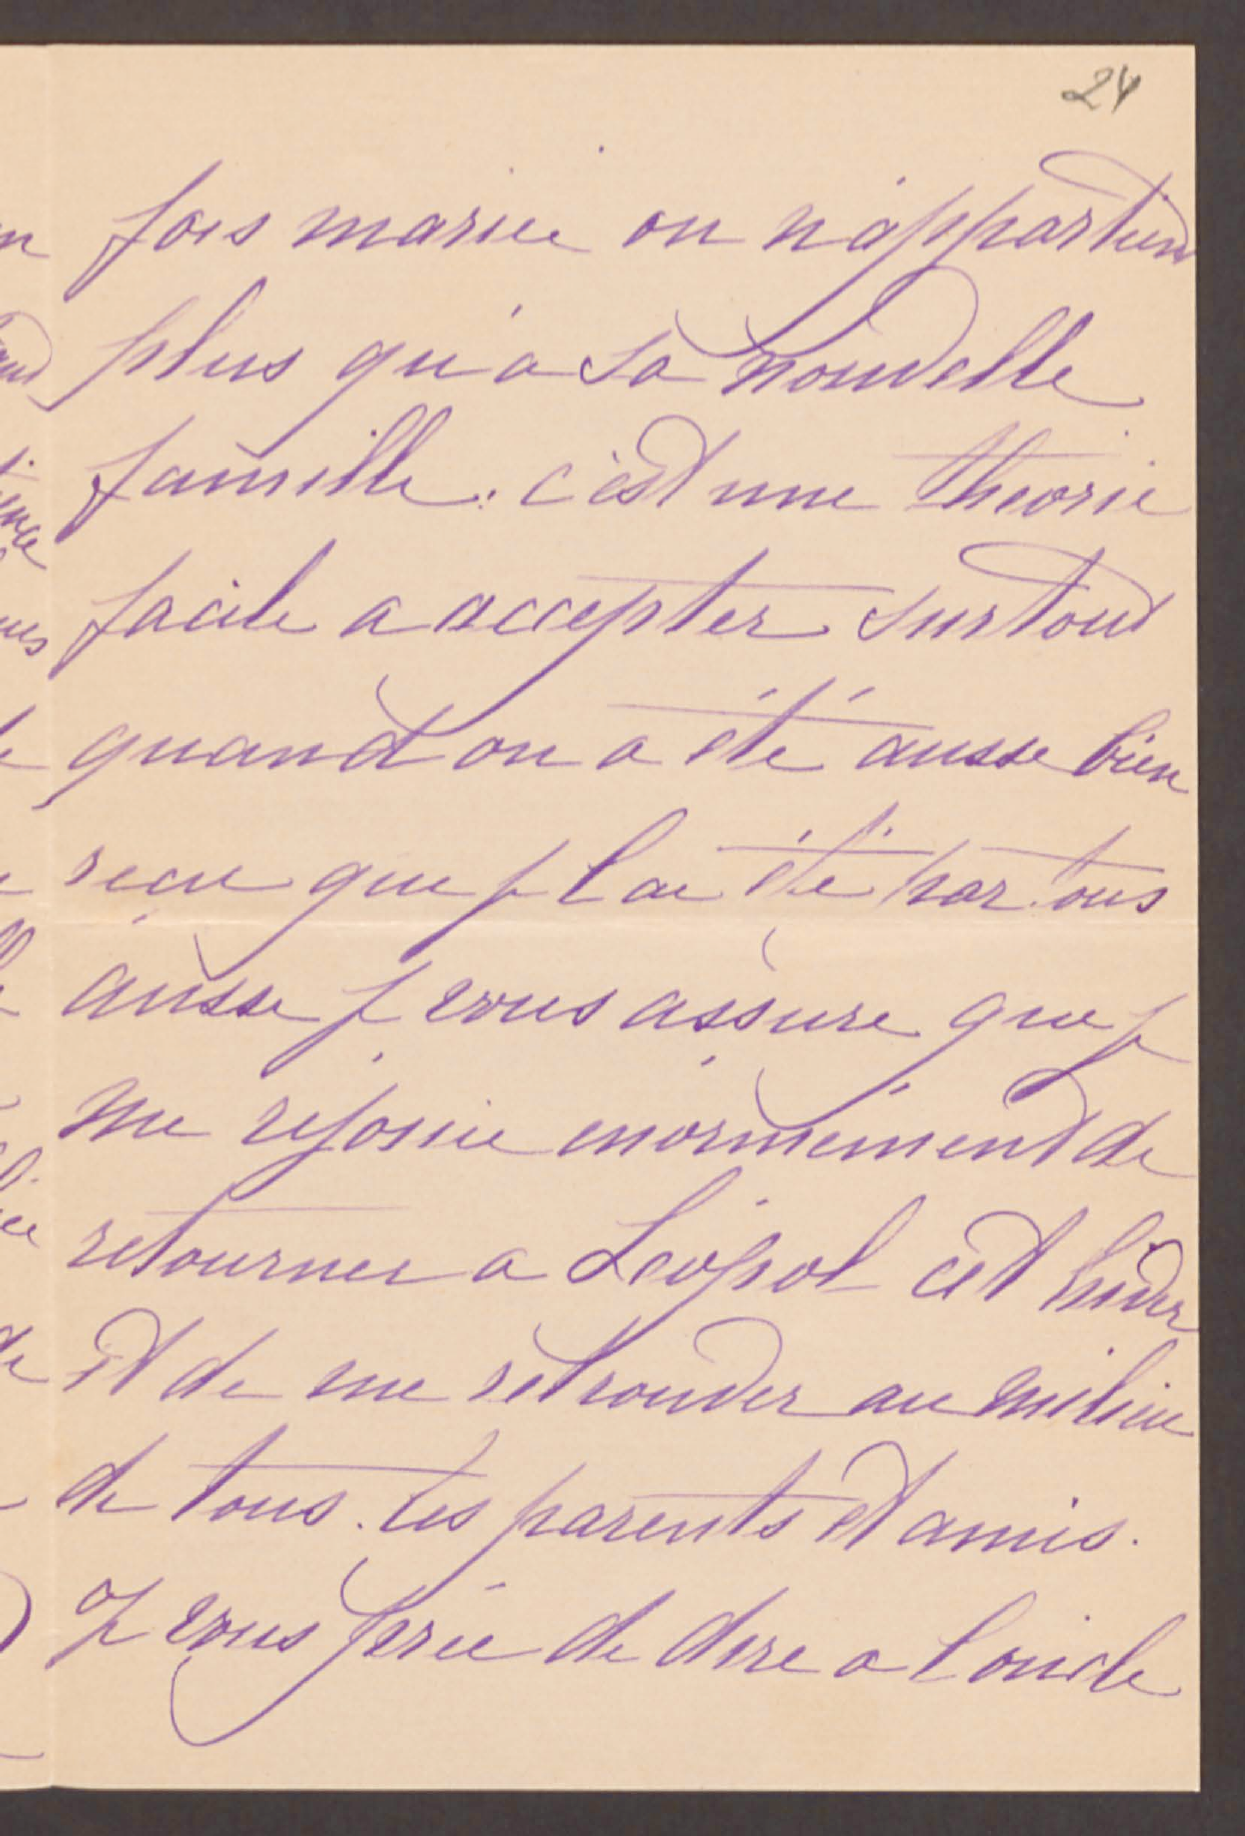 24
fois mariee on n'appartient
plus qu'a sa nouvelle
famille. c'est une theorie
facile a accepter surtout
quand on a été aussi bien
reçue que je l'ai été par tous
aussi je vous assure que je
me rejouie enormément de
retourner a Léopol cet hiver
et de me retrouver au milieu
de tous. les parents et amis.
Je vous prie de dire a l'oncle